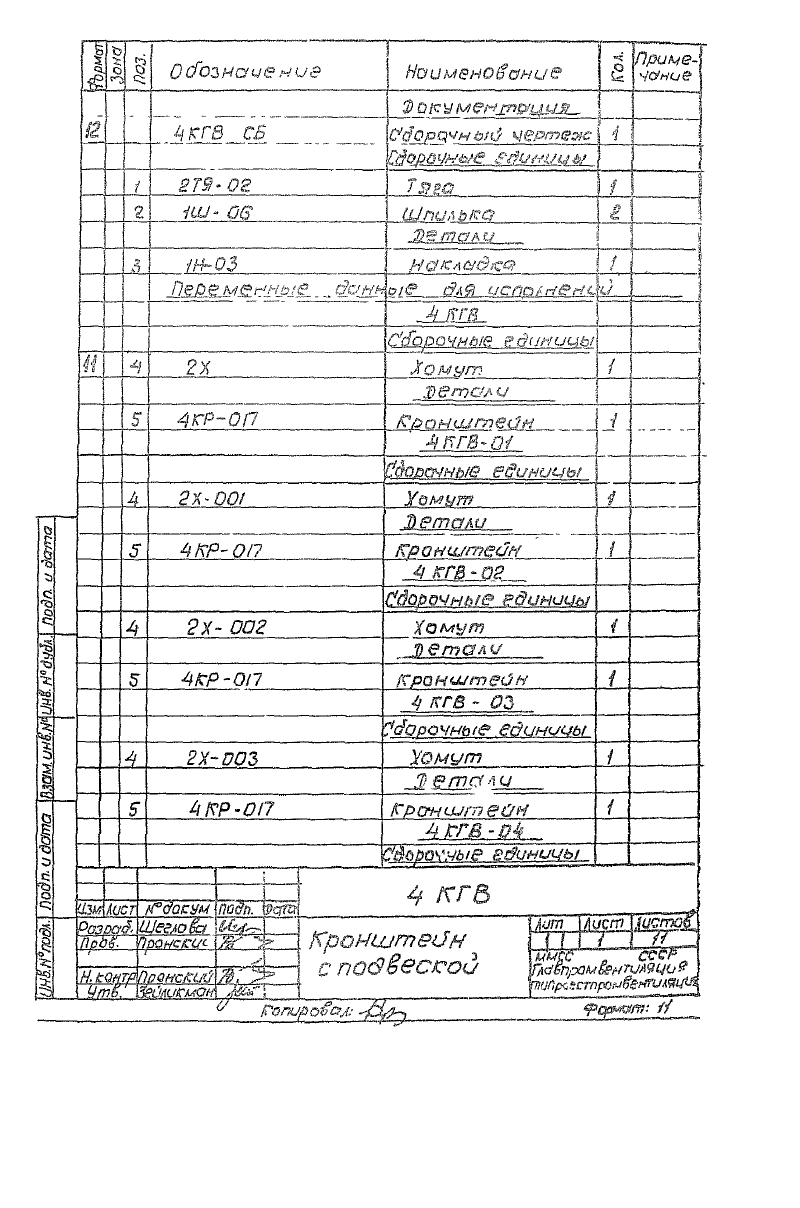 Формат Зона Поз. Обозначение Наименование Кол. Приме-
чание
Документация
12 4КГВ СБ Сборочный чертеж 1
Сборочные единицы
1 2ТЯ-02 Тяга 1
2 1Ш-06 Шпилька 2
Детали
3 1Н-03 Накладка 1
Переменные данные для исполнений
4 КГВ
Сборочные единицы
11 4 2Х Хомут 1
Детали
5 4КР-017 Кронштейн 1
4 КГВ-01
Сборочные единицы
4 2Х-001 Хомут 1
Детали
5 4КР-017 Кронштейн 1
4 КГВ-02
Сборочные единицы
4 2Х-002 Хомут 1
Детали
5 4КР-017 Кронштейн 1
4 КГВ-03
Сборочные единицы
4 2Х-003 Хомут 1
Детали
5 4КР-017 Кронштейн 1
4 КГВ-04
Сборочные единицы
Подп. и дата
Инв. № дубл.
Взам. инв. №
Подп. и дата
Инв. № подл.
4 КГВ
Изм Лист № докум Подп. Дата
Разраб. Щеглова
Пров. Пронский
Н. контр Пронский
Утв. Зейликман
Кронштейн
с подвеской
Лит Лист Листов
1 11
ММСС СССР
Главпромвентиляция
Копировал:
Формат: 11